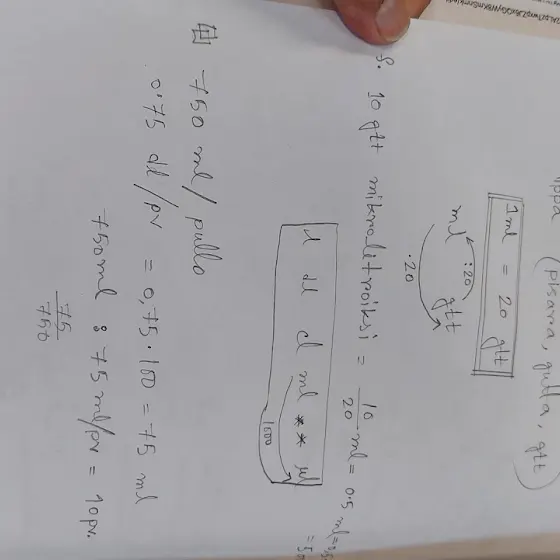 (pisara, gutta, gtt)
1ml = 20 gtt
:20
ml gtt
·20
8. 10 gtt mikrolitroiksi = 10/20 ml = 0.5 ml =
l dl cl ml * * µl
1000
750 ml / pullo
0.75 dl / pv = 0,75 · 100 = 75 ml
750 ml : 75 ml/pv = 10 pv.
75
750